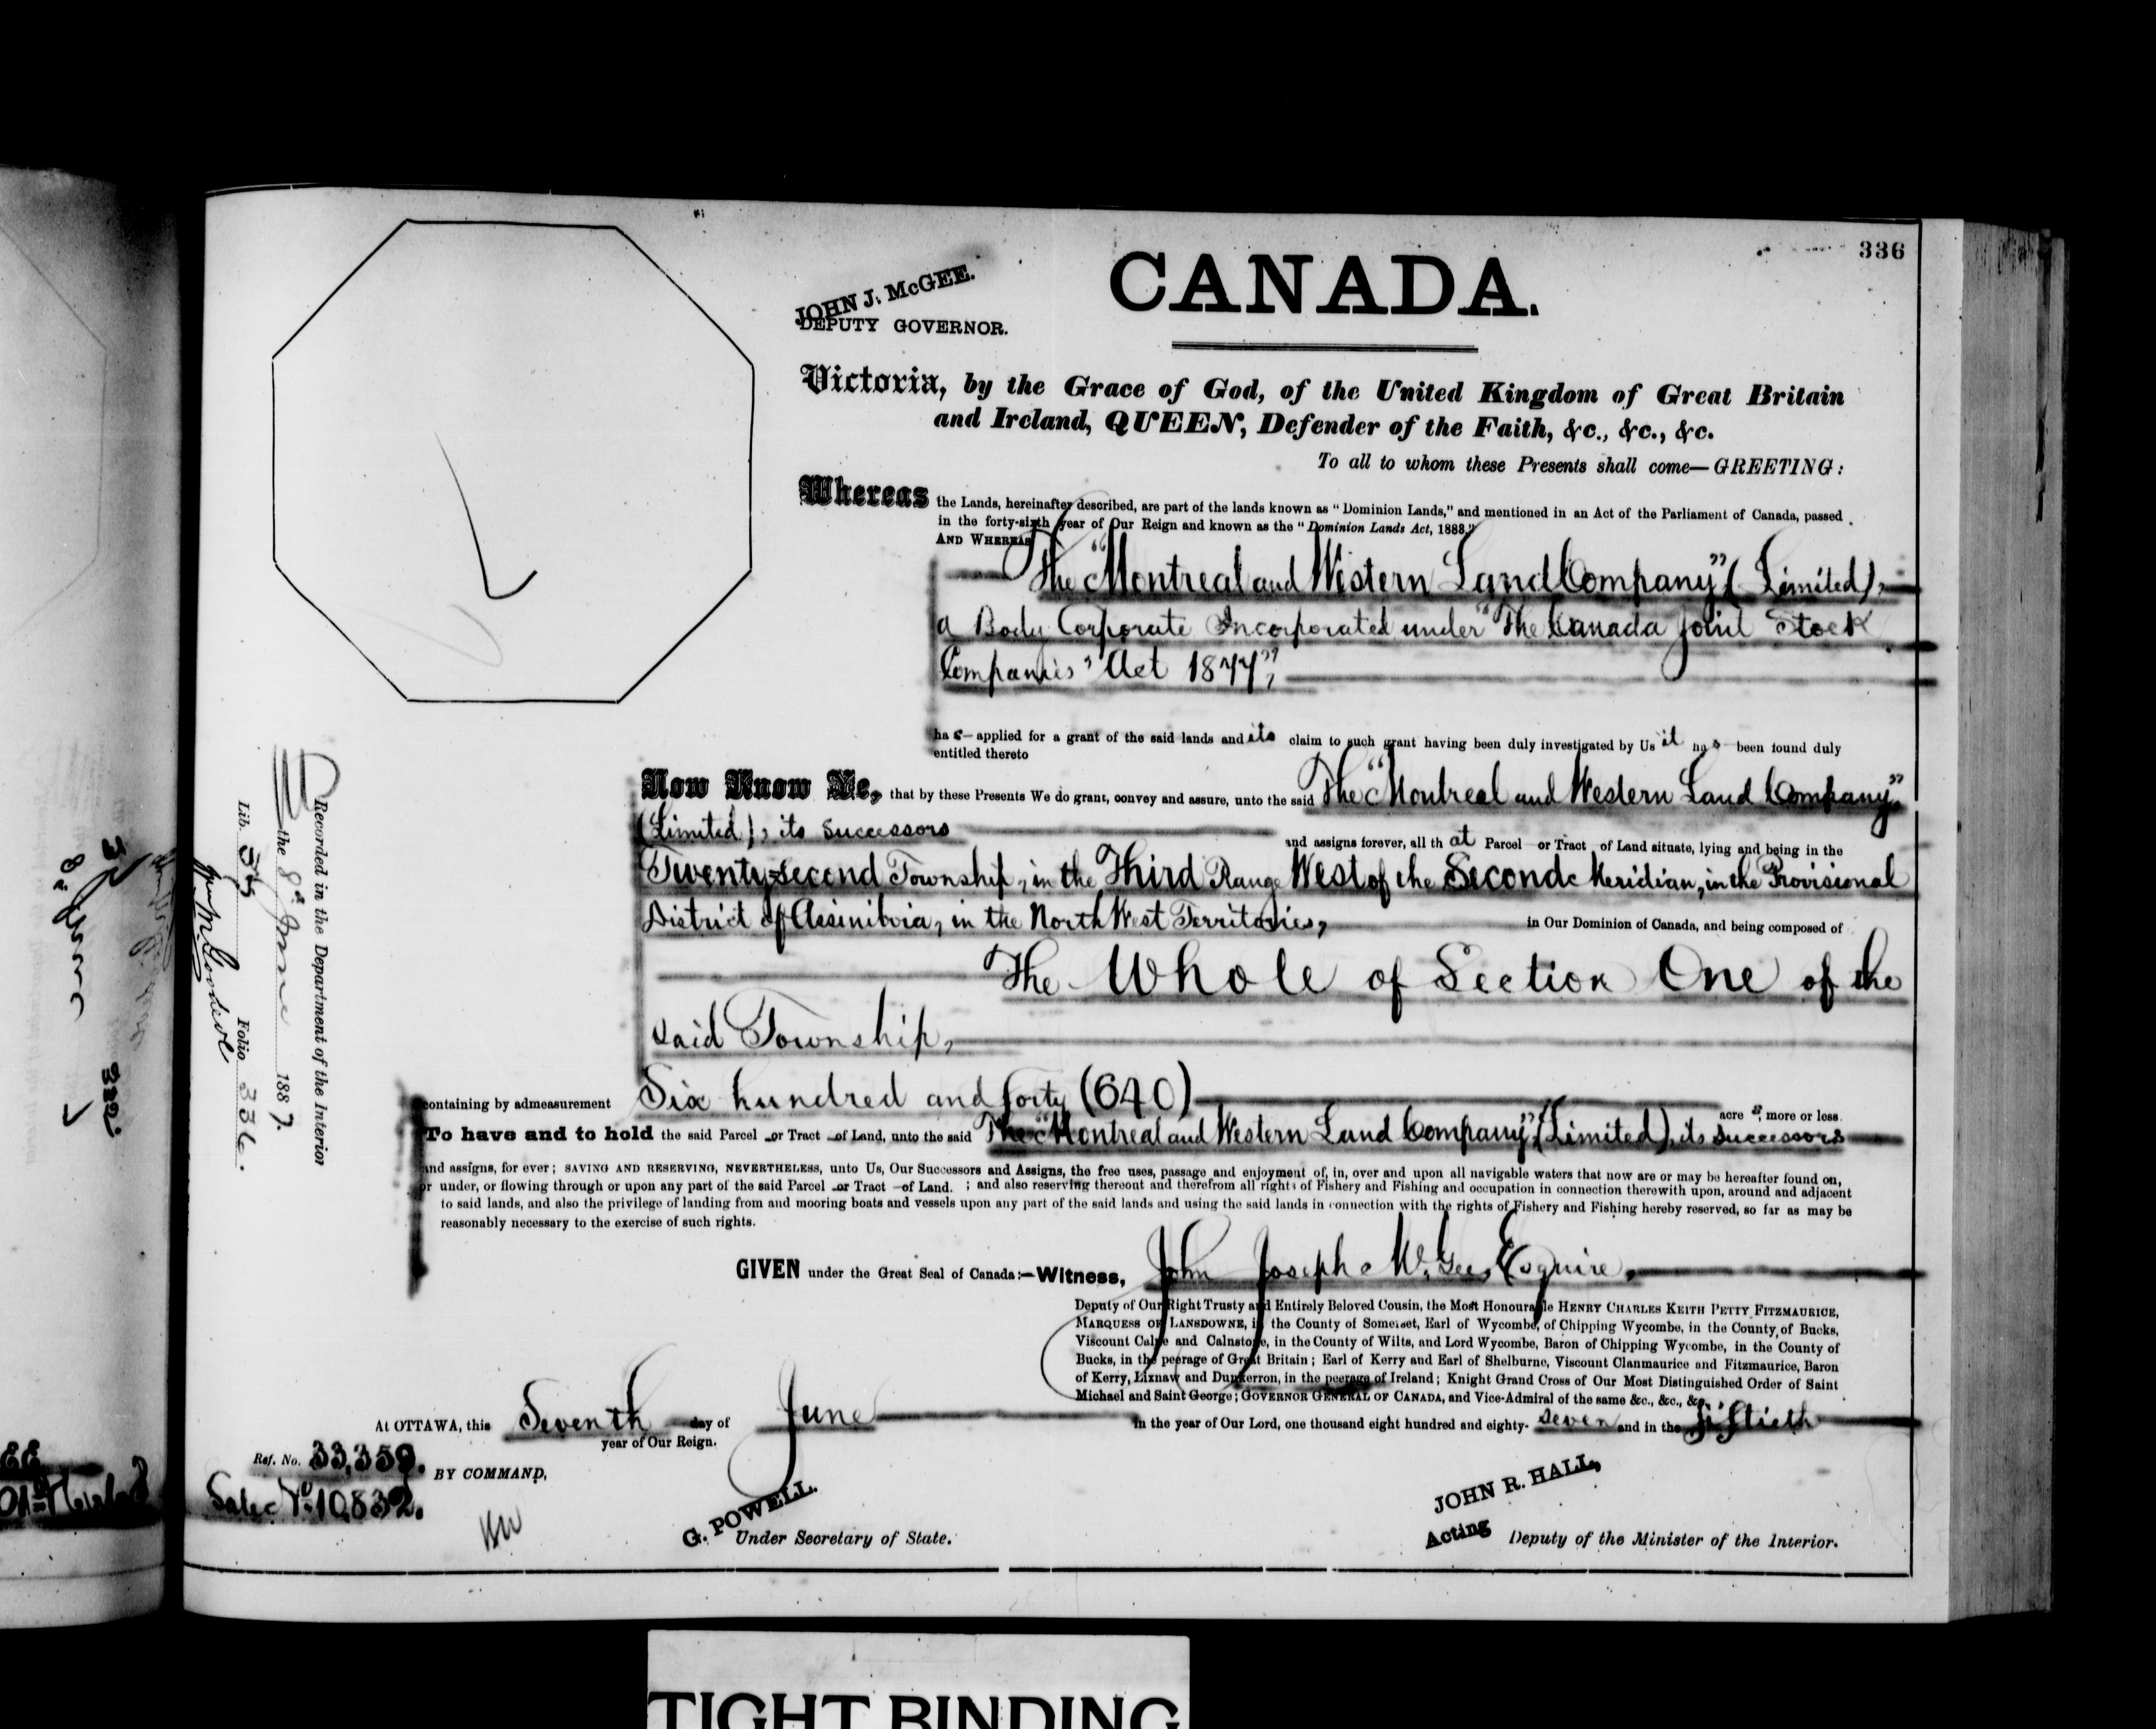 336
CANADA.
JOHN J. McGEE.
DEPUTY GOVERNOR.
Victoria, by the Grace of God, of the United Kingdom of Great Britain
and Ireland, QUEEN, Defender of the Faith, &c., &c., &c.
To all to whom these Presents shall come—GREETING:
Whereas the Lands, hereinafter described, are part of the lands known as "Dominion Lands," and mentioned in an Act of the Parliament of Canada, passed
in the forty-sixth year of Our Reign and known as the "Dominion Lands Act, 1883."
AND WHEREAS
The "Montreal and Western Land Company" (Limited),
a Body Corporate Incorporated under "The Canada Joint Stock
Companies' Act 1877",
has applied for a grant of the said lands and its claim to such grant having been duly investigated by Us it has been found duly
entitled thereto
Now Know Ye, that by these Presents We do grant, convey and assure, unto the said The "Montreal and Western Land Company"
(Limited), its successors and assigns forever, all that Parcel or Tract of Land situate, lying and being in the
Twenty-second Township, in the Third Range West of the Second Meridian, in the Provisional
District of Assiniboia, in the North West Territories, in Our Dominion of Canada, and being composed of
The Whole of Section One of the
said Township,
containing by admeasurement Six hundred and forty (640) acres, more or less.
To have and to hold the said Parcel or Tract of Land, unto the said The "Montreal and Western Land Company", (Limited), its successors
and assigns, for ever; SAVING AND RESERVING, NEVERTHELESS, unto Us, Our Successors and Assigns, the free uses, passage and enjoyment of, in, over and upon all navigable waters that now are or may be hereafter found on,
or under, or flowing through or upon any part of the said Parcel or Tract of Land. ; and also reserving thereout and therefrom all rights of Fishery and Fishing and occupation in connection therewith upon, around and adjacent
to said lands, and also the privilege of landing from and mooring boats and vessels upon any part of the said lands and using the said lands in connection with the rights of Fishery and Fishing hereby reserved, so far as may be
reasonably necessary to the exercise of such rights.
GIVEN under the Great Seal of Canada:—Witness, John Joseph McGee, Esquire,
Deputy of Our Right Trusty and Entirely Beloved Cousin, the Most Honourable HENRY CHARLES KEITH PETTY FITZMAURICE,
MARQUESS OF LANSDOWNE, in the County of Somerset, Earl of Wycombe, of Chipping Wycombe, in the County of Bucks,
Viscount Calne and Calnstone, in the County of Wilts, and Lord Wycombe, Baron of Chipping Wycombe, in the County of
Bucks, in the peerage of Great Britain; Earl of Kerry and Earl of Shelburne, Viscount Clanmaurice and Fitzmaurice, Baron
of Kerry, Lixnaw and Dunkerron, in the peerage of Ireland; Knight Grand Cross of Our Most Distinguished Order of Saint
Michael and Saint George; GOVERNOR GENERAL OF CANADA, and Vice-Admiral of the same &c., &c., &c.
At OTTAWA, this Seventh day of June in the year of Our Lord, one thousand eight hundred and eighty-seven and in the fiftieth
year of Our Reign.
Ref. No. 33,359.
BY COMMAND,
Sale No. 10,832.
G. POWELL.
Under Secretary of State.
JOHN R. HALL,
Acting Deputy of the Minister of the Interior.
Recorded in the Department of the Interior
the 8th June 1887.
Lib. Folio 336.
TIGHT BINDING